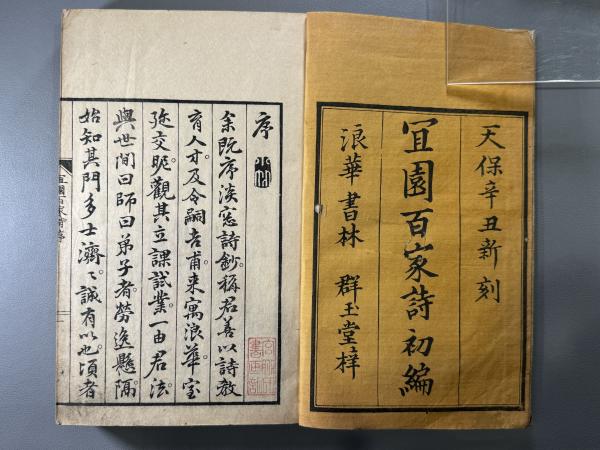 天保辛丑新刻
宜園百家詩初編
浪華書林 群玉堂梓
序
余既序淡窓詩鈔。稱君善以詩教
育人才。及令嗣吉甫来寓浪華。室
迩交昵。觀其立課試業。一由君法。
與世間曰師曰弟子者。勞逸懸隔。
始知其門多士濟〻。誠有以也。頃者